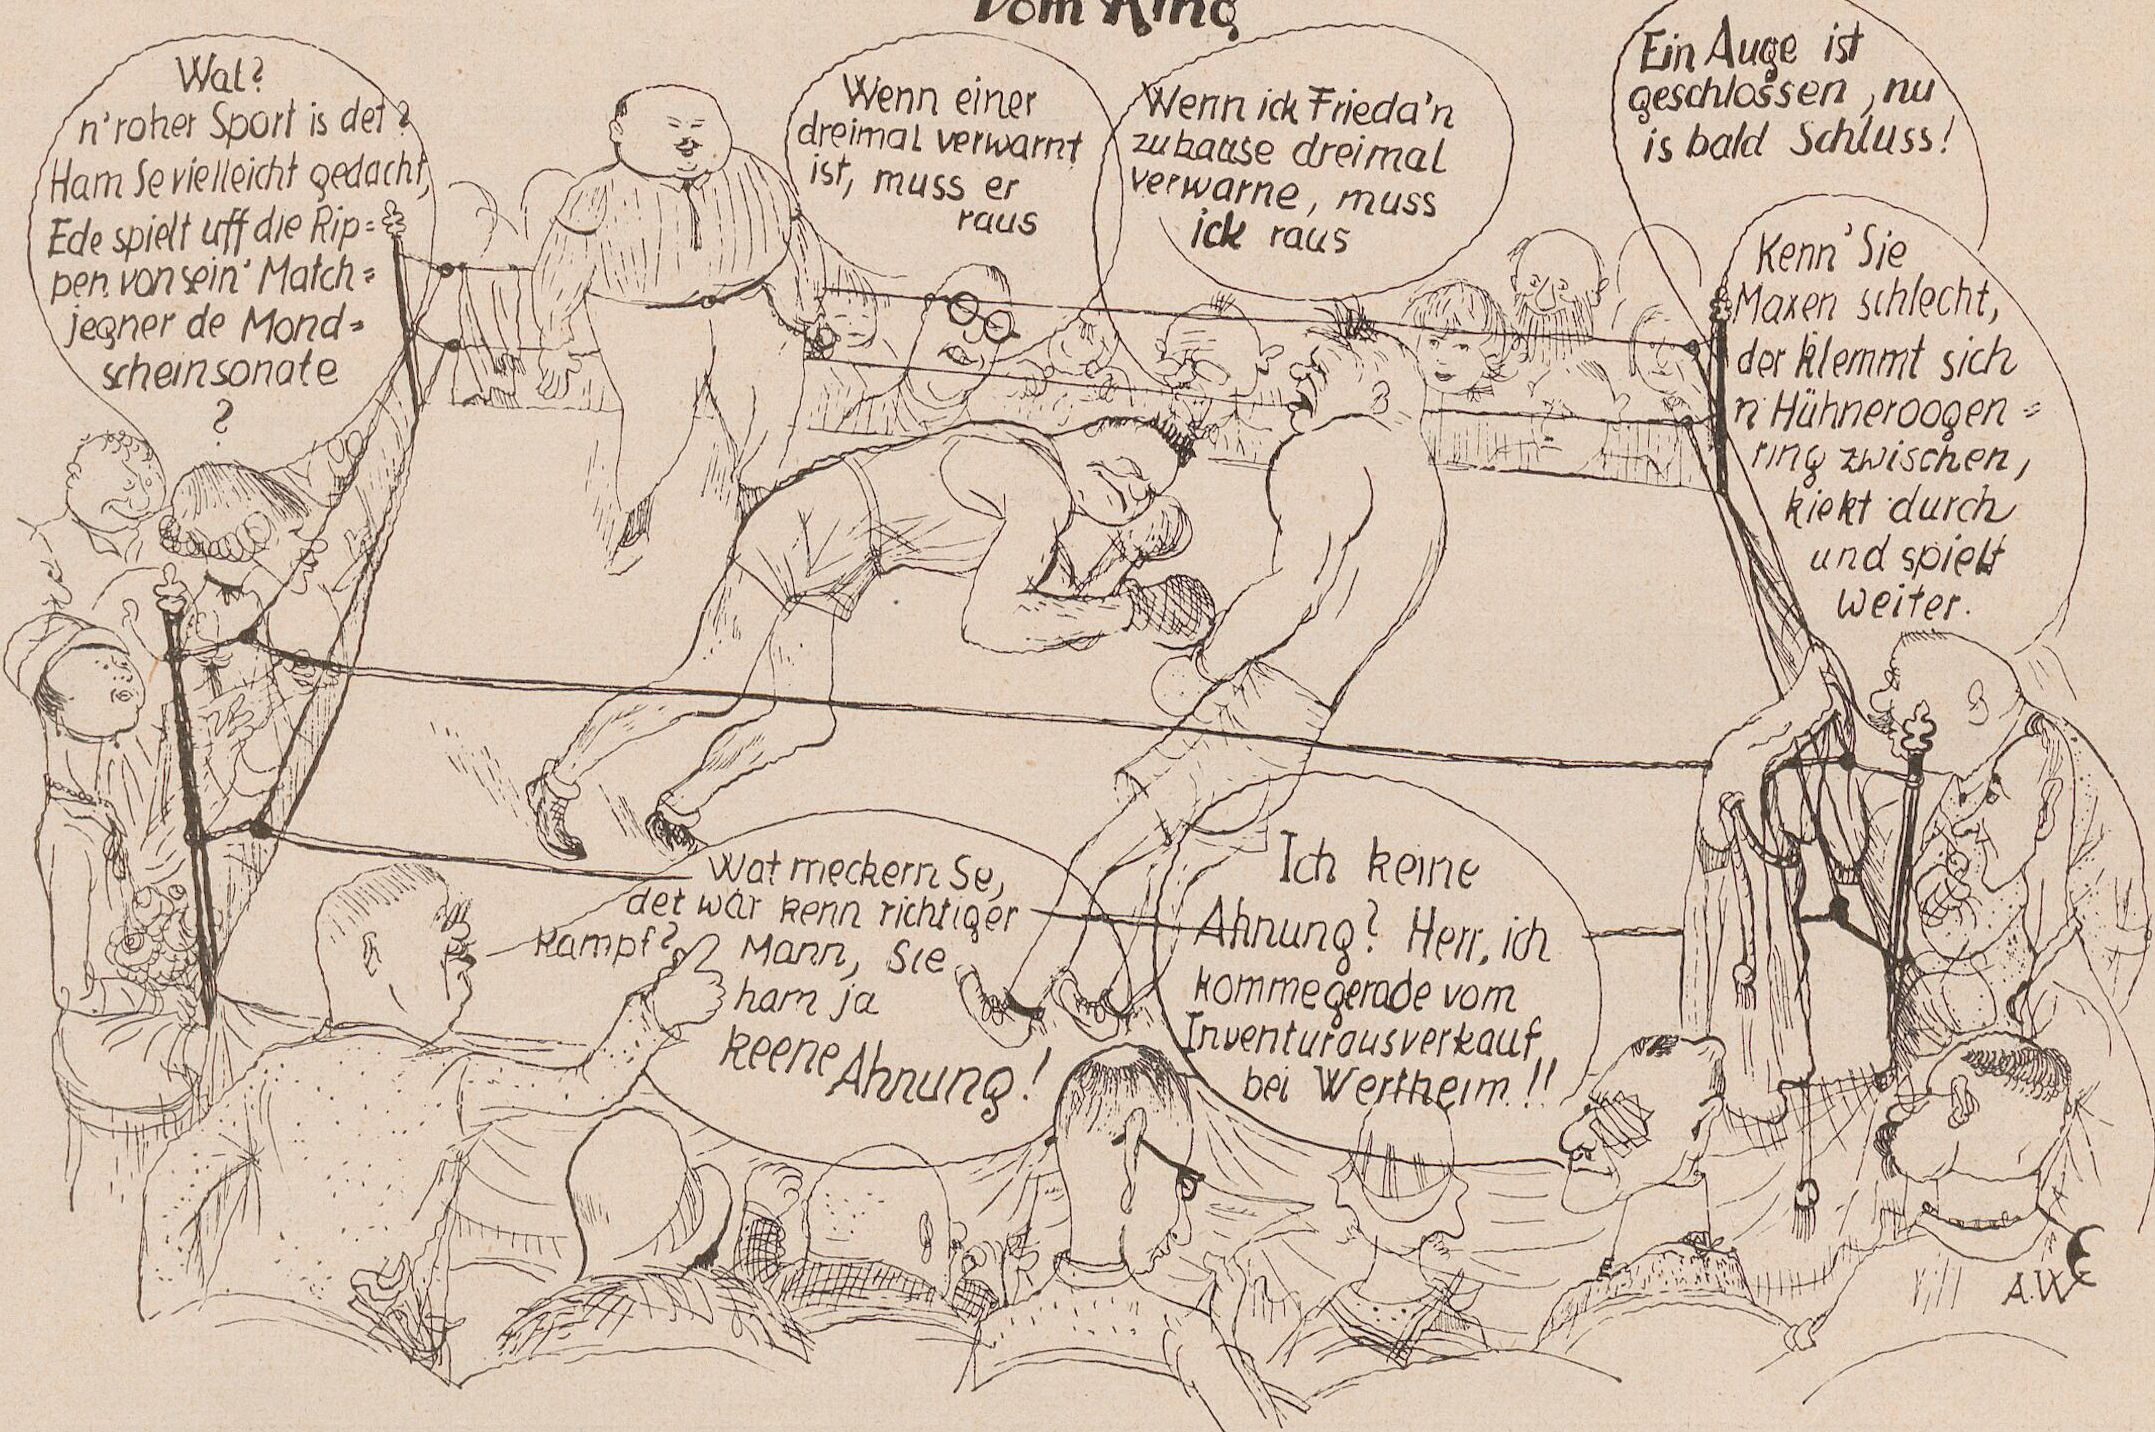 Vom Ring
Wat?
n'roher Sport is det?
Ham Se vielleicht gedacht,
Ede spielt uff die Rip=
pen von sein' Match=
jegner de Mond=
scheinsonate
?
Wenn einer
dreimal verwarnt
ist, muss er
raus
Wenn ick Frieda'n
zuhause dreimal
verwarne, muss
ick raus
Ein Auge ist
geschlossen, nu
is bald Schluss!
Kenn' Sie
Maxen schlecht,
der klemmt sich
n' Hühneroogen=
ring zwischen,
kiekt durch
und spielt
weiter.
Wat meckern Se,
det wär kenn richtiger
kampf? Mann, Sie
ham ja
keene Ahnung!
Ich keine
Ahnung? Herr, ich
komme gerade vom
Inventurausverkauf
bei Wertheim!!
A.W